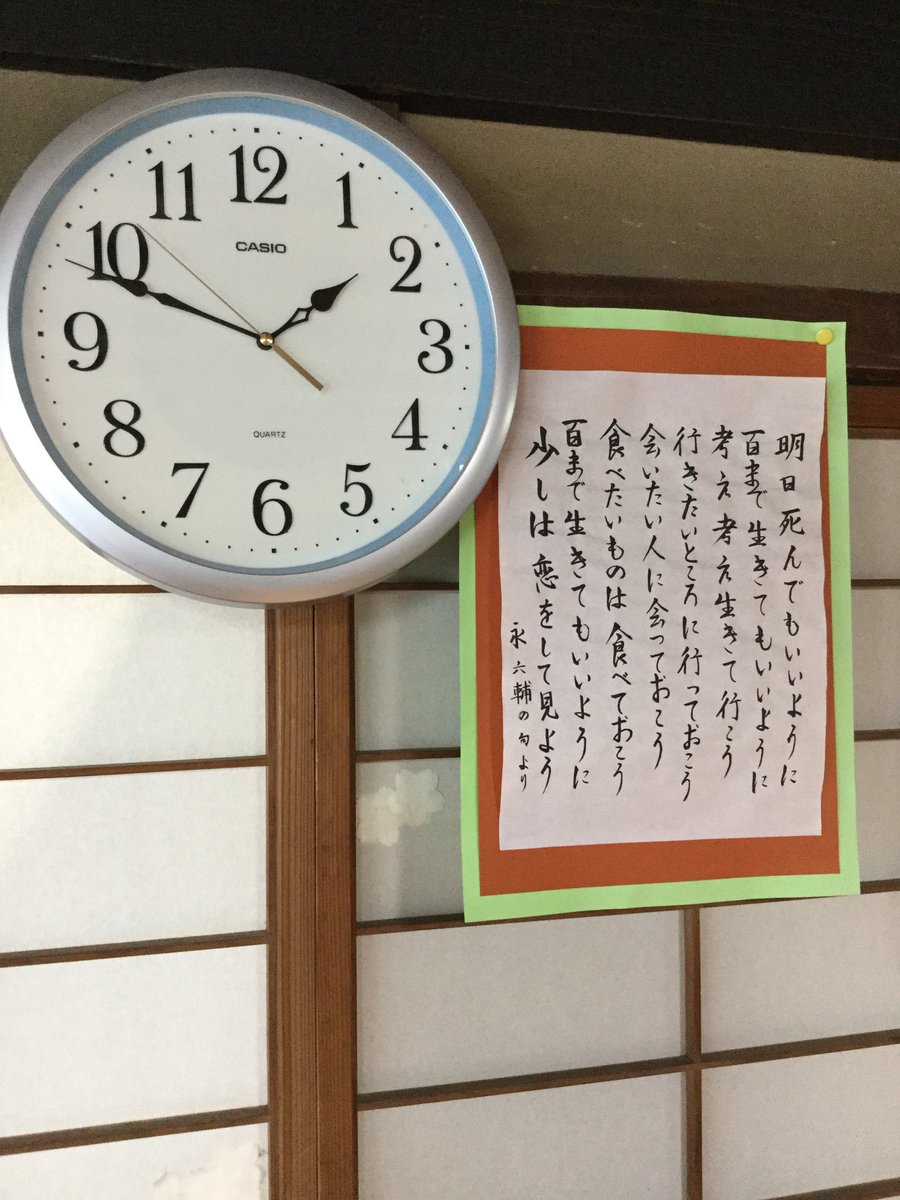 12
1
2
3
4
5
6
7
8
9
10
11
CASIO
QUARTZ
明日死んでもいいように
百まで生きてもいいように
考え考え生きて行こう
行きたいところに行っておこう
会いたい人に会っておこう
食べたいものは食べておこう
百まで生きてもいいように
少しは恋をして見よう
永六輔の句より